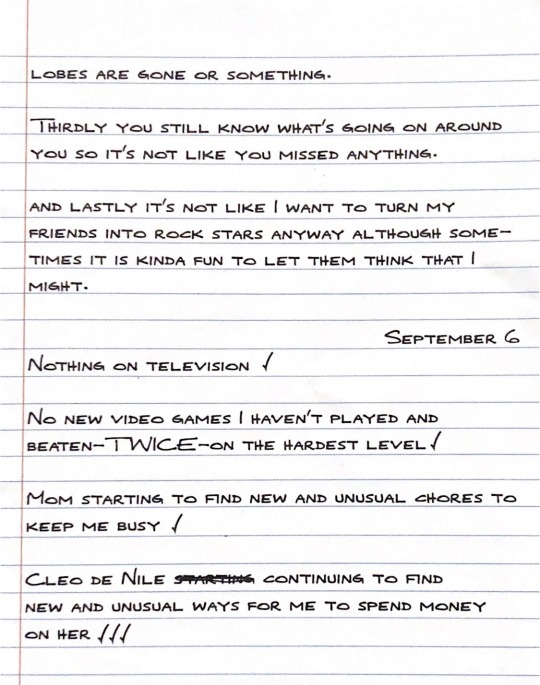 LOBES ARE GONE OR SOMETHING.
THIRDLY YOU STILL KNOW WHAT'S GOING ON AROUND
YOU SO IT'S NOT LIKE YOU MISSED ANYTHING.
AND LASTLY IT'S NOT LIKE I WANT TO TURN MY
FRIENDS INTO ROCK STARS ANYWAY ALTHOUGH SOME-
TIMES IT IS KINDA FUN TO LET THEM THINK THAT I
MIGHT.
SEPTEMBER 6
NOTHING ON TELEVISION ✓
NO NEW VIDEO GAMES I HAVEN'T PLAYED AND
BEATEN-TWICE-ON THE HARDEST LEVEL ✓
MOM STARTING TO FIND NEW AND UNUSUAL CHORES TO
KEEP ME BUSY ✓
CLEO DE NILE STARTING CONTINUING TO FIND
NEW AND UNUSUAL WAYS FOR ME TO SPEND MONEY
ON HER ✓✓✓